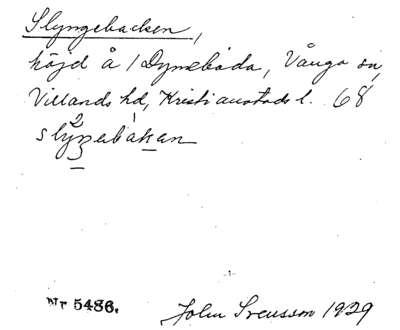 Slyngebacken,
höjd å 1 Dynneboda, Vånga sn,
Villands hd, Kristianstads l. 68
slyngebakan
- 1 -
Nr 5486. John Svensson 1929